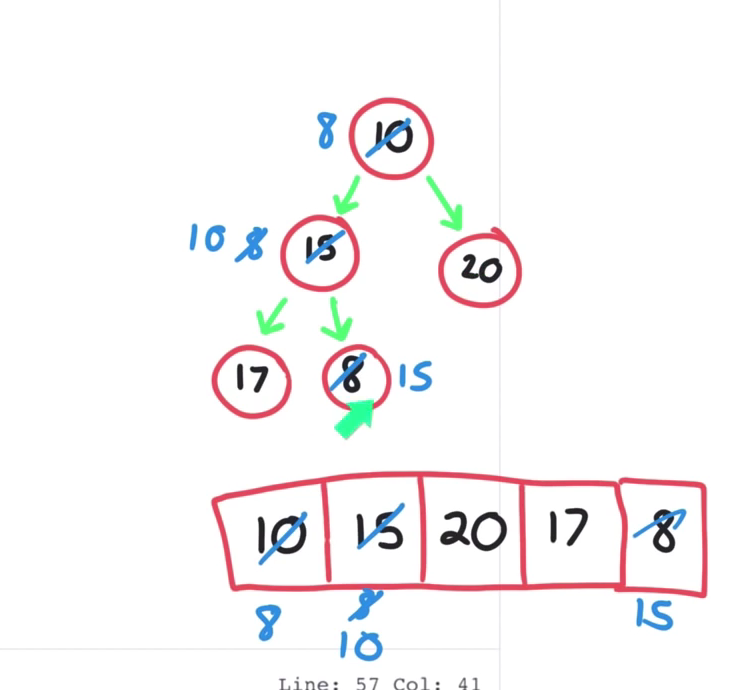 8 10
10 8 15 20
17 8 15
10 15 20 17 8
8 8 15
10
Line: 57 Col: 41